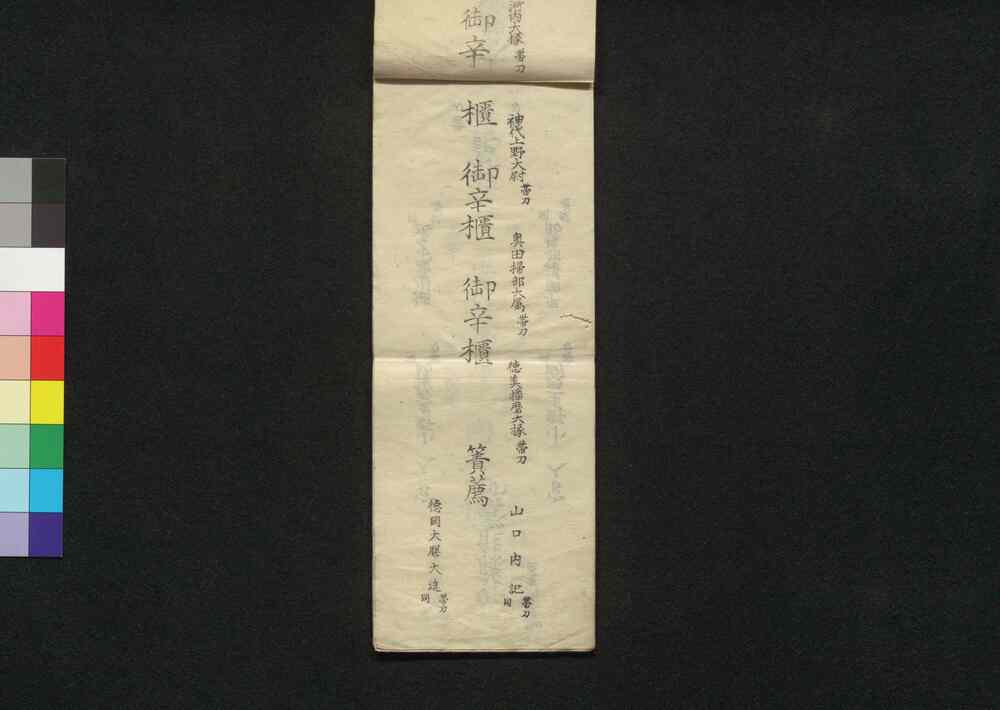 河内大掾 帯刀
神代上野大尉 帯刀
奥田掃部大属 帯刀
徳美播磨大掾 帯刀
山口内記 帯刀 同
御辛櫃 御辛櫃 御辛櫃 簀薦
徳岡大膳大進 帯刀 同